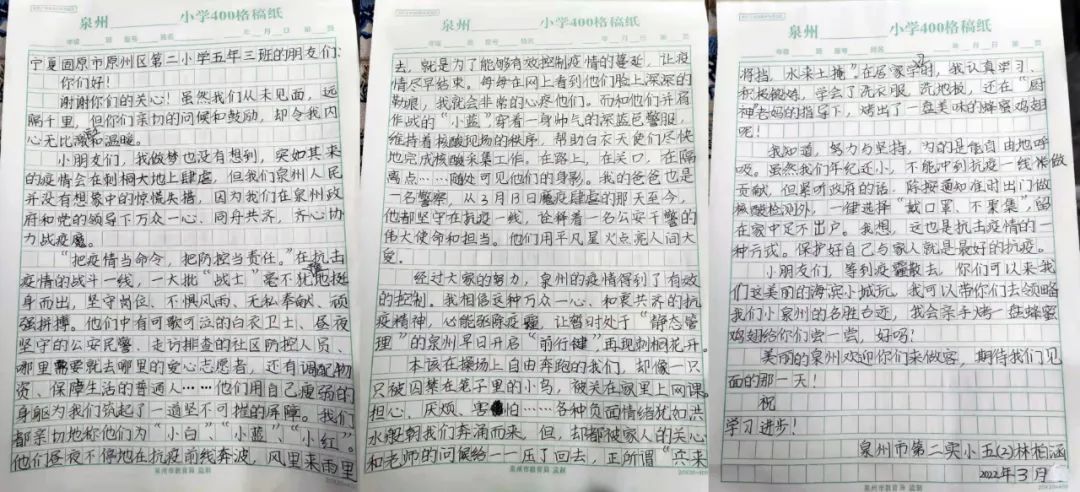 泉州 小学400格稿纸
年级 班 座号 姓名 年 月 日 第 页
宁夏固原市原州区第二小学五年三班的朋友们:
你们好!
谢谢你们的关心!虽然我们从未见面,远
隔千里,但你们亲切的问候和鼓励,却令我内
心无比激动和温暖。
小朋友们,我做梦也没有想到,突如其来
的疫情会在刺桐大地上肆虐,但我们泉州人民
并没有想象中的惊慌失措,因为我们在泉州政
府和党的领导下万众一心、同舟共济,齐心协
力战疫魔。
“把疫情当命令,把防控当责任。”在抗击
疫情的战斗一线,一大批“战士”毫不犹豫地挺
身而出,坚守岗位、不惧风雨、无私奉献、顽
强拼搏。他们中有可歌可泣的白衣卫士、昼夜
坚守的公安民警、走访排查的社区防控人员、
哪里需要就去哪里的爱心志愿者,还有调配物
资、保障生活的普通人……他们用自己瘦弱的
身躯为我们筑起了一道坚不可摧的屏障。我们
都亲切地称他们为“小白”、“小蓝”、“小红”。
他们昼夜不停地在抗疫前线奔波,风里来雨里
泉州市教育局 监制
泉州 小学400格稿纸
年级 班 座号 姓名 年 月 日 第 页
去,就是为了能够有效控制疫情的蔓延,让疫
情尽早结束。每每在网上看到他们脸上深深的
勒痕,我就会非常的心疼他们。而和他们并肩
作战的“小蓝”穿着一身帅气的深蓝色警服,
维持着核酸现场的秩序,帮助白衣天使们尽快
地完成核酸采集工作。在路上,在关口,在隔
离点……随处可见他们的身影。我的爸爸也是
一名警察,从3月13日魔疫肆虐的那天至今,
他都坚守在抗疫一线,诠释着一名公安干警的
伟大使命和担当。他们用平凡星火点亮人间大
爱。
经过大家的努力,泉州的疫情得到了有效
的控制。我相信这种万众一心、和衷共济的抗
疫精神,必能驱除疫霾,让暂时处于“静态管
理”的泉州早日开启“前行键”再现刺桐花开。
本该在操场上自由奔跑的我们,却像一只
只被囚禁在笼子里的小鸟,被关在家里上网课。
担心、厌烦、害怕……各种负面情绪犹如洪
水般朝我们奔涌而来,但,却都被家人的关心
和老师的问候给一一压了回去,正所谓“兵来
泉州市教育局 监制
泉州 小学400格稿纸
年级 班 座号 姓名 年 月 日 第 页
将挡,水来土掩”在居家学习时,我认真学习、
积极锻炼,学会了洗衣服、洗地板,还在“厨
神老妈的指导下,烤出了一盘美味的蜂蜜鸡翅
呢!
我知道,努力与坚持,为的是能自由地呼
吸。虽然我们年纪还小,不能冲到抗疫一线做
贡献,但要听政府的话,除按通知准时出门做
核酸检测外,一律选择“戴口罩、不聚集”,留
在家中足不出户。我想,这也是抗击疫情的一
种方式。保护好自己与家人就是最好的抗疫。
小朋友们,等到疫霾散去,你们可以来我
们这美丽的海滨小城玩。我可以带你们去领略
我们小泉州的名胜古迹,我会亲手烤一盘蜂蜜
鸡翅给你们尝一尝,好吗?
美丽的泉州欢迎你们来做客,期待我们见
面的那一天!
祝
学习进步!
泉州市第二实小五(2)林柏涵
2022年3月